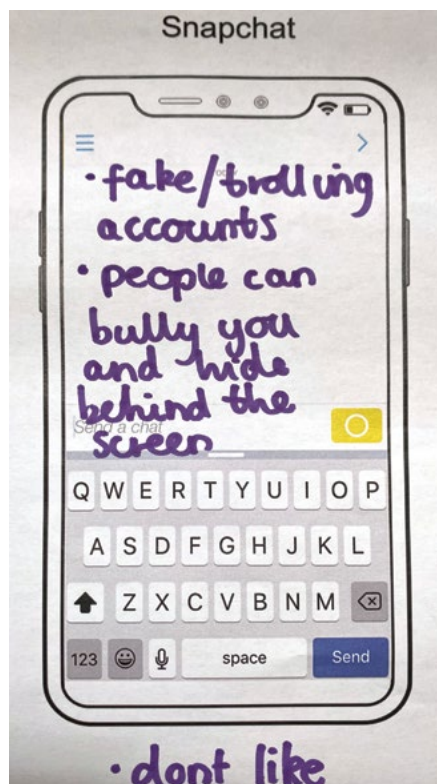 Snapchat
• fake/trolling
accounts
• people can
bully you
and hide
behind the
Send a chat
screen
Q W E R T Y U I O P
A S D F G H J K L
Z X C V B N M
123 space Send
• dont like